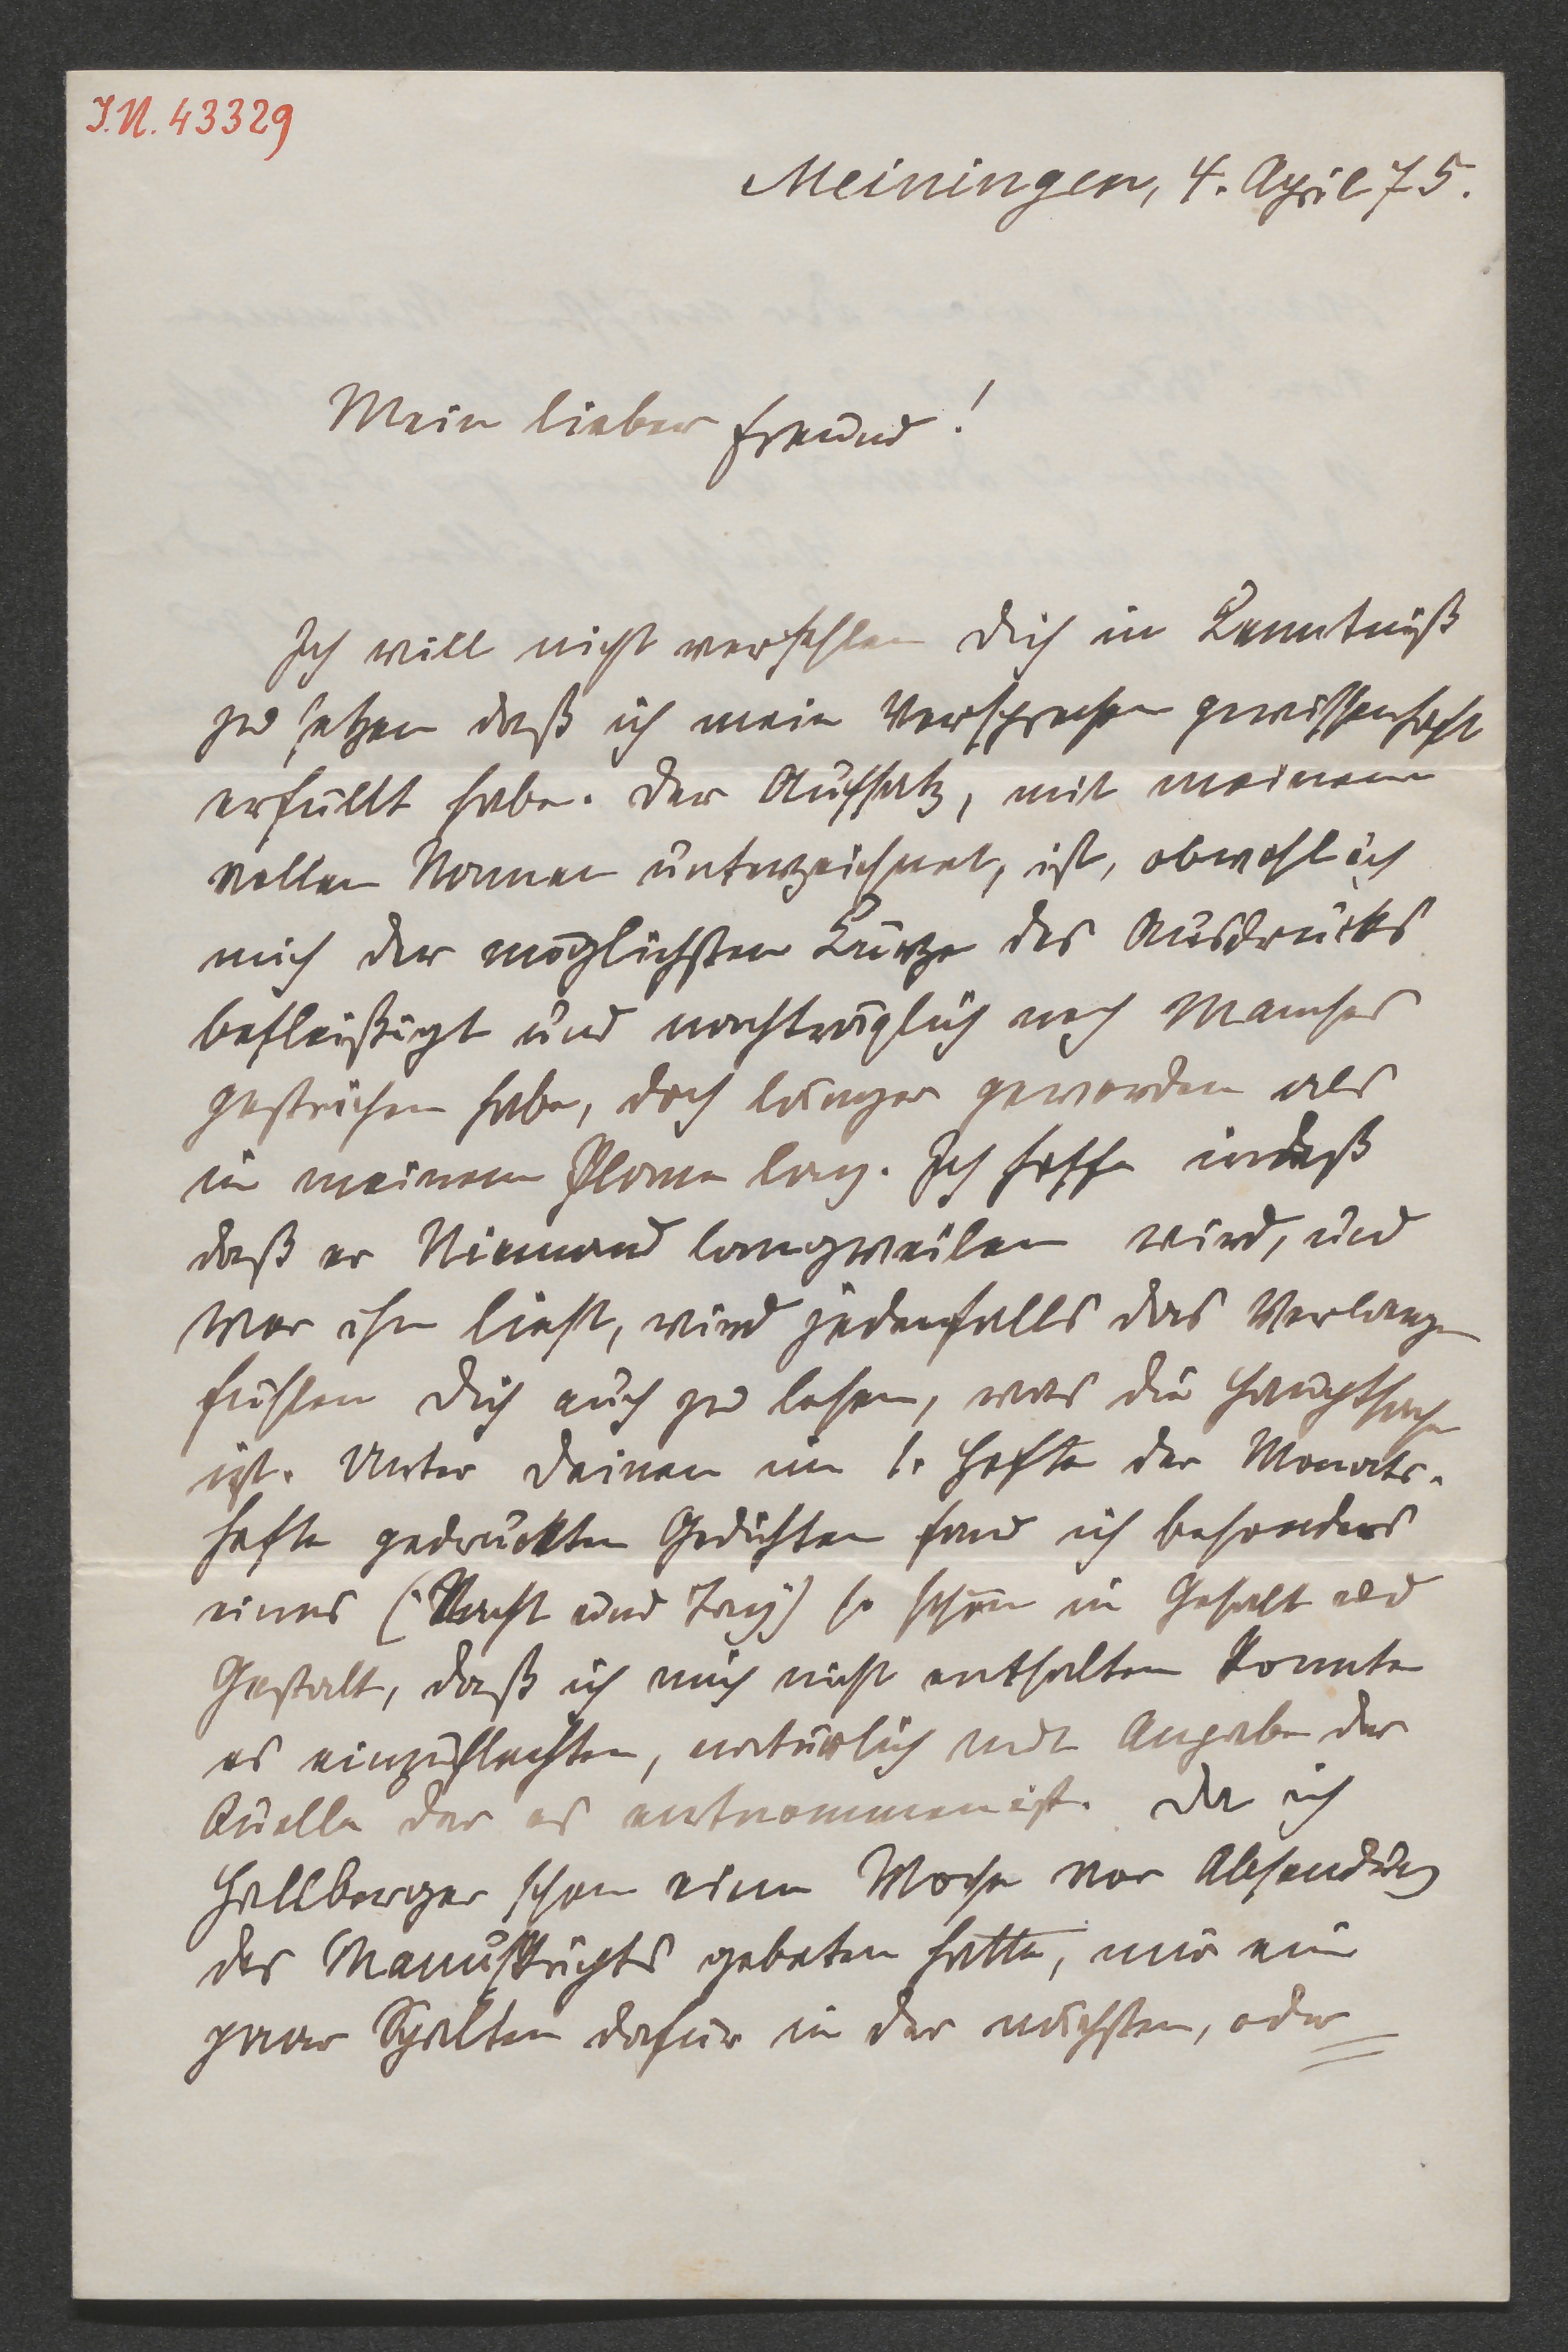 I.N. 43329
Meiningen, 4. April 75.
Mein lieber Freund!
Ich will nicht verfehlen Dich in Kenntniß
zu setzen daß ich mein Versprechen gewissenhaft
erfüllt habe. Der Aufsatz, mit meinem
vollen Namen unterzeichnet, ist, obwohl ich
mich der möglichsten Kürze des Ausdrucks
befleißigt und nachträglich noch Manches
gestrichen habe, doch länger geworden als
in meinem Plane lag. Ich hoffe indeß
daß er Niemand langweilen wird, und
wer ihn liest, wird jedenfalls das Verlangen
fühlen Dich auch zu lesen, was die Hauptsache
ist. Unter Deinen im 1. Hefte der Monats-
hefte gedruckten Gedichten fand ich besonders
eines (Nacht und Tag) so schön in Gehalt und
Gestalt, daß ich mich nicht enthalten konnte
es einzuflechten, natürlich mit Angabe der
Quelle der es entnommen ist. Da ich
Hallberger schon eine Woche vor Absendung
des Manuskripts gebeten hatte, mir ein
paar Spalten dafür in der nächsten, oder